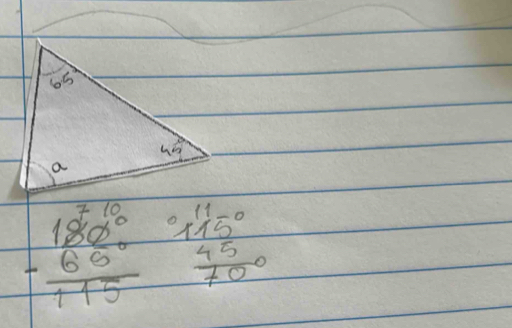 65°
45°
a
7 10
180°
- 65°
115
0 11
115°
45
70°